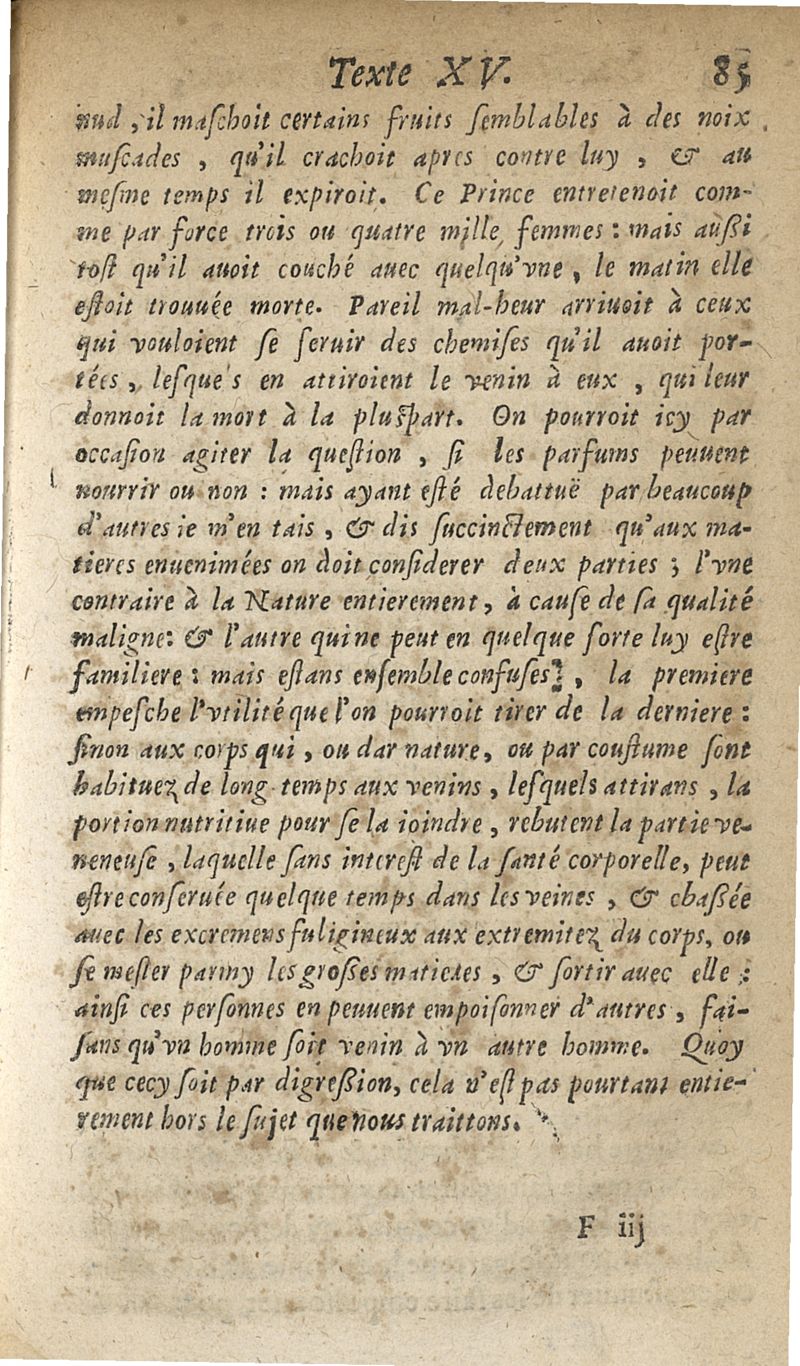 Texte XV. 85
nud, il maſchoit certains fruits ſemblables à des noix
muſcades, qu'il crachoit apres contre luy, & au
meſme temps il expiroit. Ce Prince entretenoit com-
me par force trois ou quatre mille, femmes : mais auſſi
toſt qu'il auoit couché auec quelqu'vne, le matin elle
eſtoit trouuée morte. Pareil mal-heur arriuoit à ceux
qui vouloient ſe ſeruir des chemiſes qu'il auoit por-
tées, leſque's en attiroient le venin à eux, qui leur
donnoit la mort à la pluſpart. On pourroit icy par
occaſion agiter la queſtion, ſi les parfums peuuent
nourrir ou non : mais ayant eſté debattuë par beaucoup
d'autres ie m'en tais, & dis ſuccinctement qu'aux ma-
tieres enuenimées on doit conſiderer deux parties ; l'vne
contraire à la Nature entierement, à cauſe de ſa qualité
maligne: & l'autre qui ne peut en quelque ſorte luy eſtre
familiere : mais eſtans enſemble confuſes, la premiere
empeſche l'vtilité que l'on pourroit tirer de la derniere :
ſinon aux corps qui, ou dar nature, ou par couſtume ſont
habituez de long-temps aux venins, leſquels attirans, la
portion nutritiue pour ſe la ioindre, rebutent la partie ve-
neneuſe, laquelle ſans intereſt de la ſanté corporelle, peut
eſtre conſeruée quelque temps dans les veines, & chaſſée
auec les excremens fuligineux aux extremitez du corps, ou
ſe meſler parmy les groſſes matieres, & ſortir auec elle :
ainſi ces perſonnes en peuuent empoiſonner d'autres, fai-
ſans qu'vn homme ſoit venin à vn autre homme. Quoy
que cecy ſoit par digreſſion, cela n'eſt pas pourtant entie-
rement hors le ſujet que nous traittons.
F iij